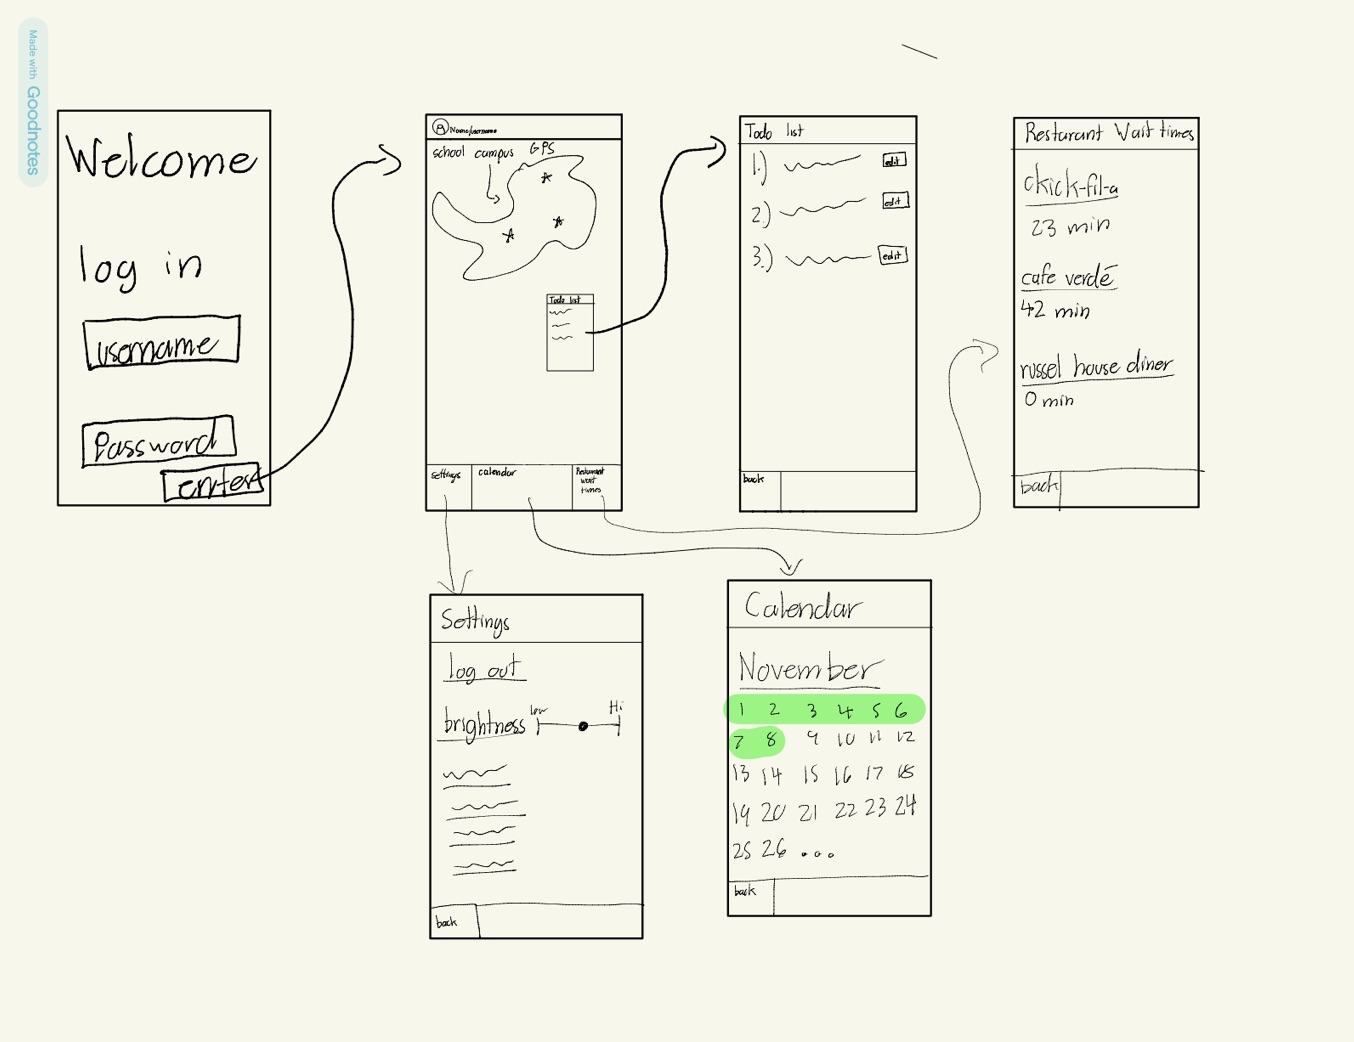 Made with Goodnotes
Welcome
log in
username
Password
enter
Name/username
school campus GPS
Todo list
settings
calendar
Restaurant
wait
times
Todo list
1.)
edit
2.)
edit
3.)
edit
back
Resturant Wait times
ckick-fil-a
23 min
cafe verdé
42 min
russel house diner
0 min
back
Settings
log out
brightness
low
Hi
back
Calendar
November
1 2 3 4 5 6
7 8 9 10 11 12
13 14 15 16 17 18
19 20 21 22 23 24
25 26 ...
back